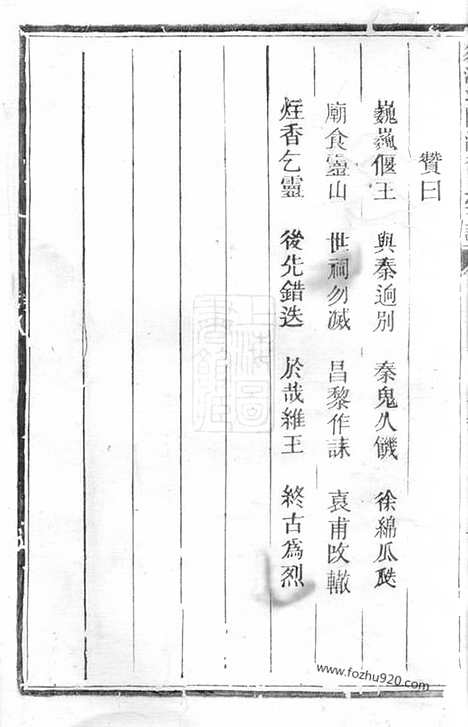 贊曰
巍巍偃王　與秦逈別　秦鬼久饑　徐綿瓜瓞
廟食靈山　世祠勿滅　昌黎作誄　袁甫改轍
炷香乞靈　後先錯迭　於哉維王　終古為烈
上海圖書館藏
www.fozhu920.com